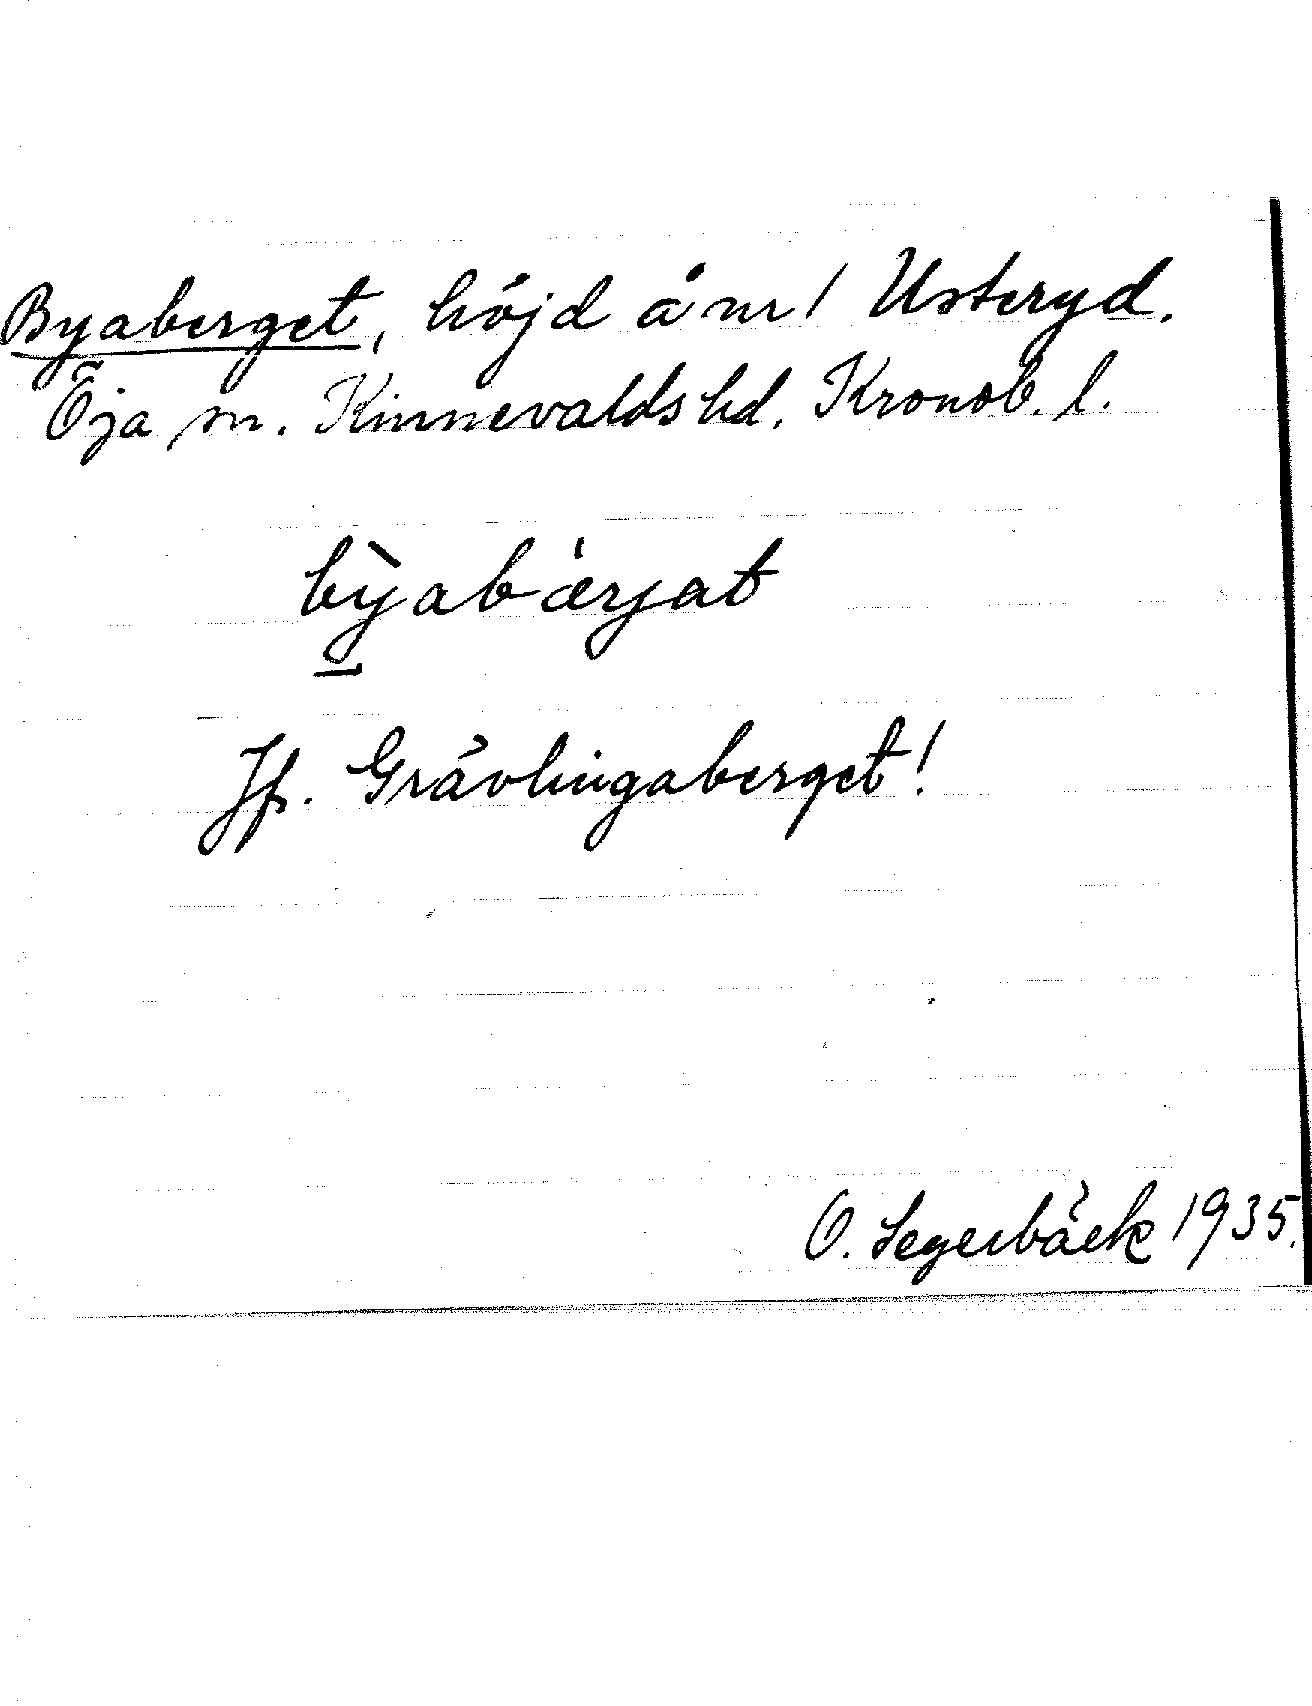 Byaberget, höjd å nr 1 Usteryd.
Öja sn. Kinnevalds hd. Kronob. l.
bỳ̱abærjat
Jfr. Grävlingaberget!
O. Segerbäck 1935.